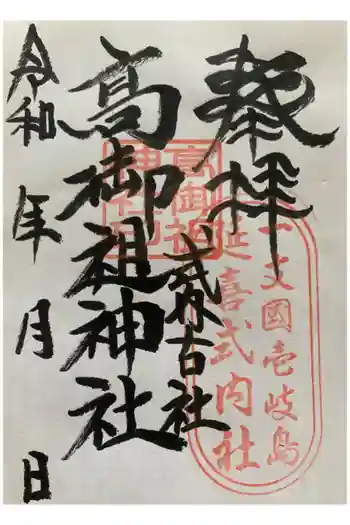 奉拝
式外古社
高御祖神社
令和 年 月 日
高御祖
神社印
文國壱岐島
延喜式内社